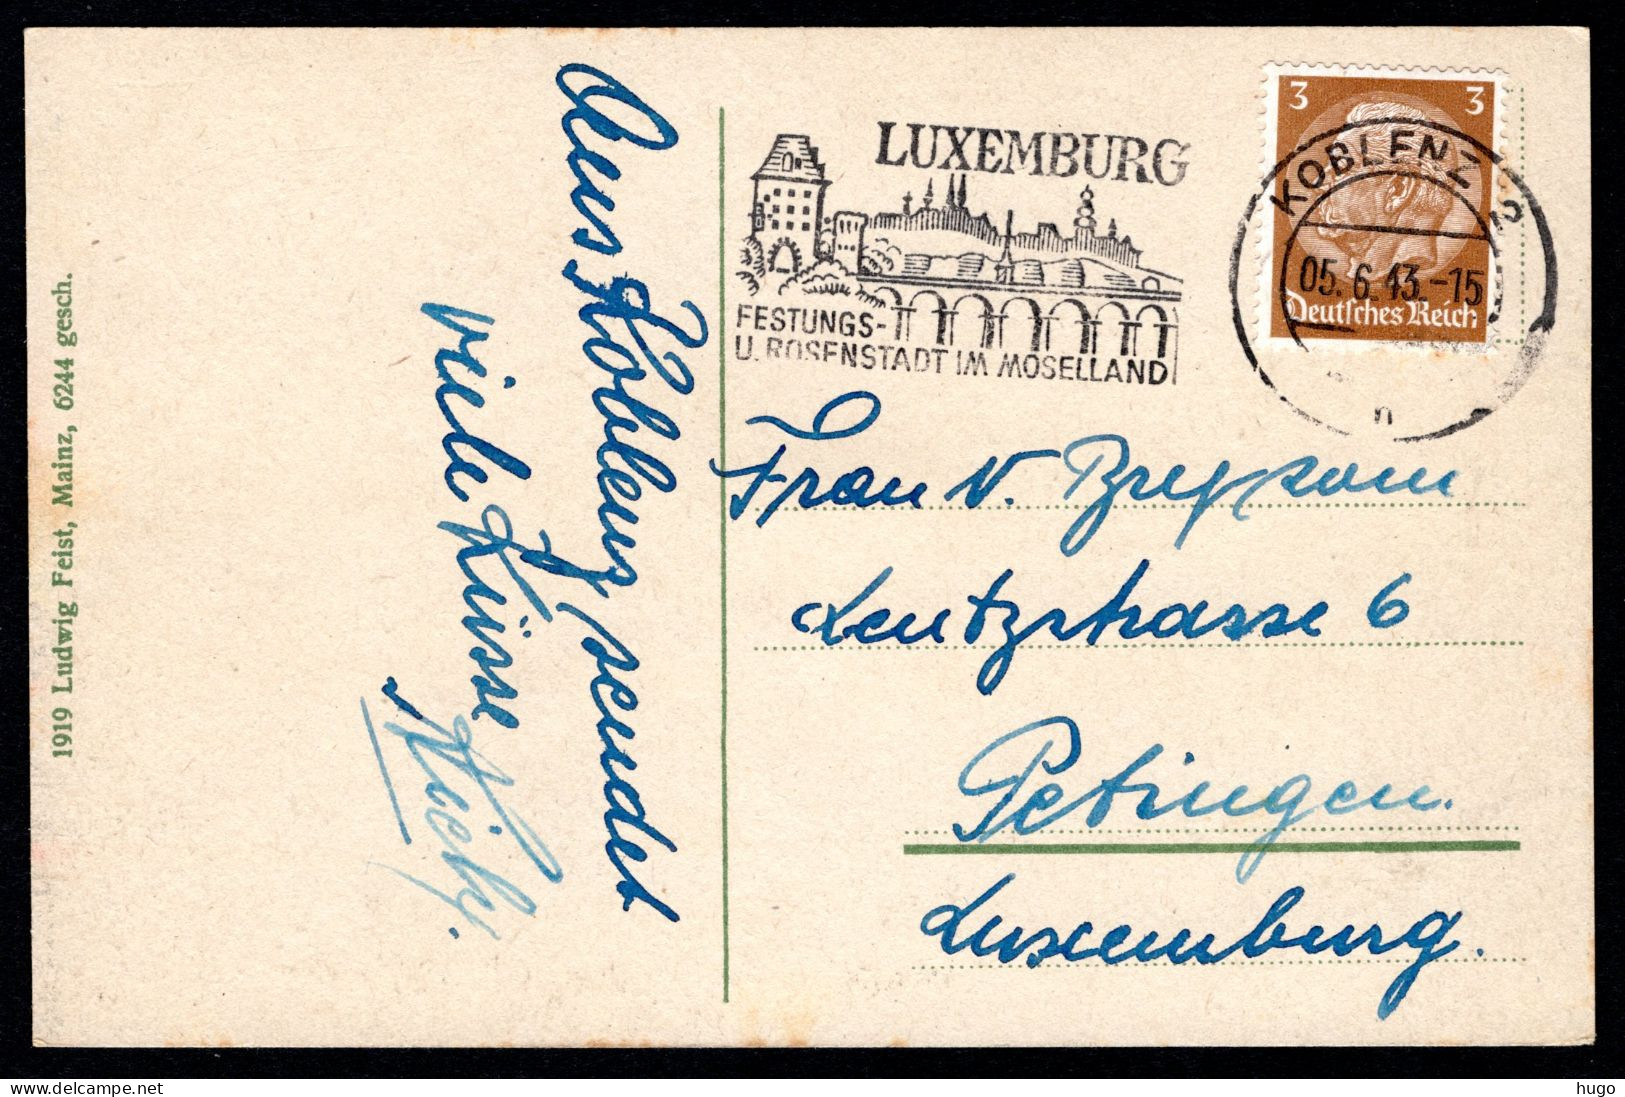 1919 Ludwig Feist, Mainz, 6244 gesch.
Aus Koblenz sendet
viele Küsse
LUXEMBURG
FESTUNGS-
U. ROSENSTADT IM MOSELLAND
3 3
Deutsches Reich
KOBLENZ 2
05.6.43.-15
n
Frau v.
Leutzstrasse 6
Petingen.
Luxemburg.
delcampe.net
hugo